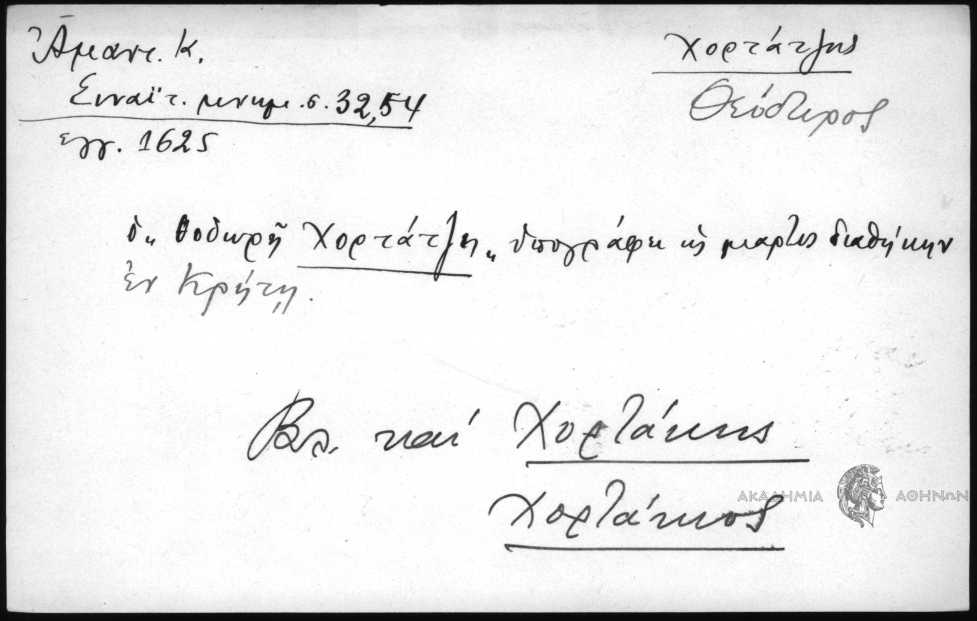 Ἀμαντ. Κ.
Σιναϊτ. μνημ. σ. 32,54
ἐγγ. 1625
Χορτάτζης
Θεόδωρος
ὁ „ Θοδωρῆ Χορτάτζη „ ὑπογράφει ὡς μάρτυς διαθήκην
ἐν Κρήτῃ.
Βλ. καί Χορτάκης
Χορτάκιος
ΑΚΑΔΗΜΙΑ ΑΘΗΝΩΝ